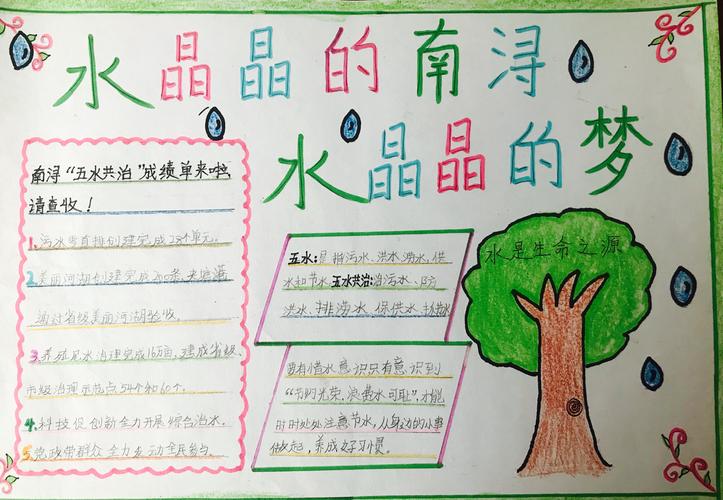 水晶晶的南浔
水晶晶的梦
南浔“五水共治”成绩单来啦,
请查收!
1.污水零直排创建完成28个单元。
2.美丽河湖创建完成200条,
通过省级美丽河湖验收。
3.养殖尾水治理完成16万亩,建成省级、
市级治理示范点54个和60个。
4.科技促创新全力开展综合治水。
5.党政带群众全力发动全民参与。
五水:是指污水、洪水、涝水、供
水和节水,五水共治:治污水、防
洪水、排涝水、保供水、抓节水
要有惜水意识只有意识到
“节约光荣,浪费水可耻”,才能
时时处处注意节水,从身边的小事
做起,养成好习惯。
水是生命之源